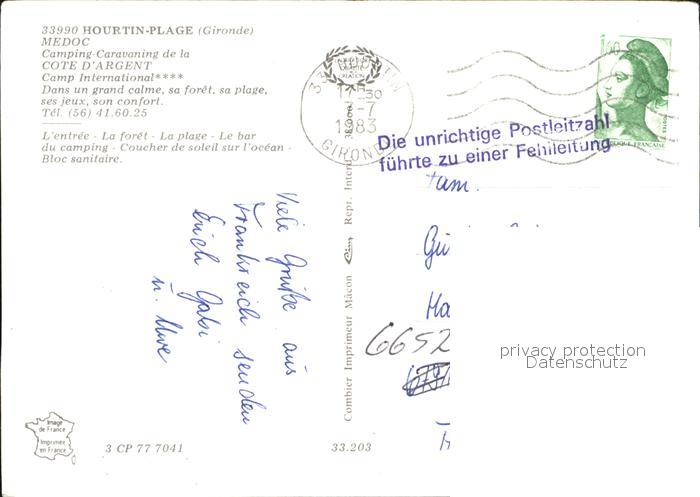 33990 HOURTIN-PLAGE (Gironde)
MEDOC
Camping-Caravaning de la
COTE D'ARGENT
Camp International****
Dans un grand calme, sa forêt, sa plage,
ses jeux, son confort.
Tél. (56) 41.60.25
L'entrée - La forêt - La plage - Le bar
du camping - Coucher de soleil sur l'océan -
Bloc sanitaire.
Viele Grüße aus
Frankreich senden
Erich Gabi
u. Uwe
Image
de France
Imprimée
en France
3 CP 77 7041
33.203
Combier Imprimeur Mâcon Cim Repr. Inter
HOURTIN
1983
GIRONDE
Die unrichtige Postleitzahl
führte zu einer Fehlleitung
Fam.
Gü
Ha
6652
privacy protection
Datenschutz